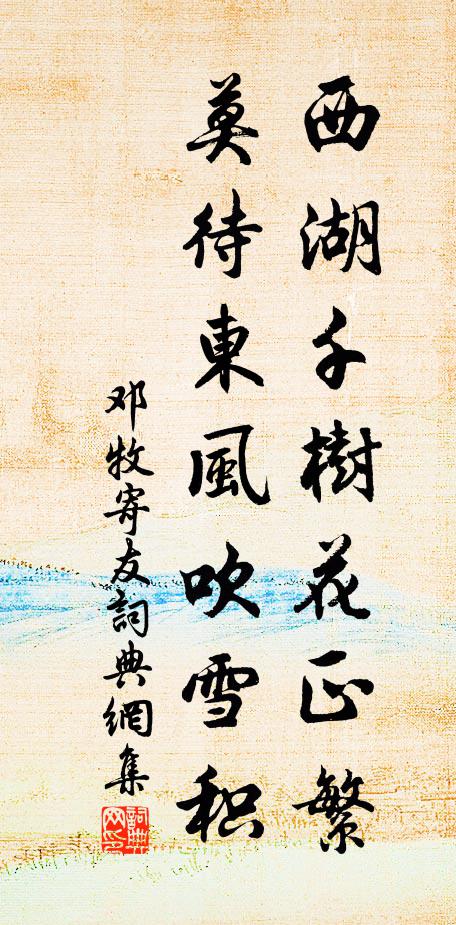 西湖千樹花正繁
莫待東風吹雪积
邓牧寄友詞典網集
詞典网印